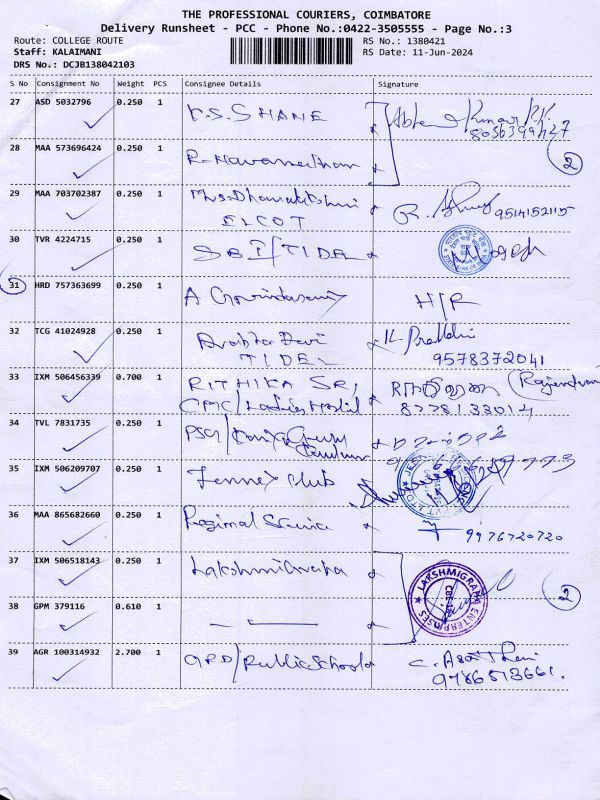 THE PROFESSIONAL COURIERS, COIMBATORE
Delivery Runsheet - PCC - Phone No.:0422-3505555 - Page No.:3
Route: COLLEGE ROUTE RS No.: 1380421
Staff: KALAIMANI RS Date: 11-Jun-2024
DRS No.: DCJB138042103
S No Consignment No Weight PCS Consignee Details Signature
27 ASD 5032796 0.250 1 K.S. SHANE
8056399427
28 MAA 573696424 0.250 1 R. Navaneethan
2
29 MAA 703702387 0.250 1
ELCOT 9514152115
30 TVR 4224715 0.250 1 SBI/TIDEL
31 HRD 757363699 0.250 1 A Govindasamy H/R
32 TCG 41024928 0.250 1 Devi
TIDEL 9578372041
33 IXM 506456339 0.700 1 RITHIKA SRI (Rajendran)
8778133014
34 TVL 7831735 0.250 1 PSG/
35 IXM 506209707 0.250 1 Club
36 MAA 865682660 0.250 1 Regional Service
9976720720
37 IXM 506518143 0.250 1 LAKSHMIGRAPHA ENTERPRISES
2
38 GPM 379116 0.610 1
39 AGR 100314932 2.700 1 Public School
9786513661.